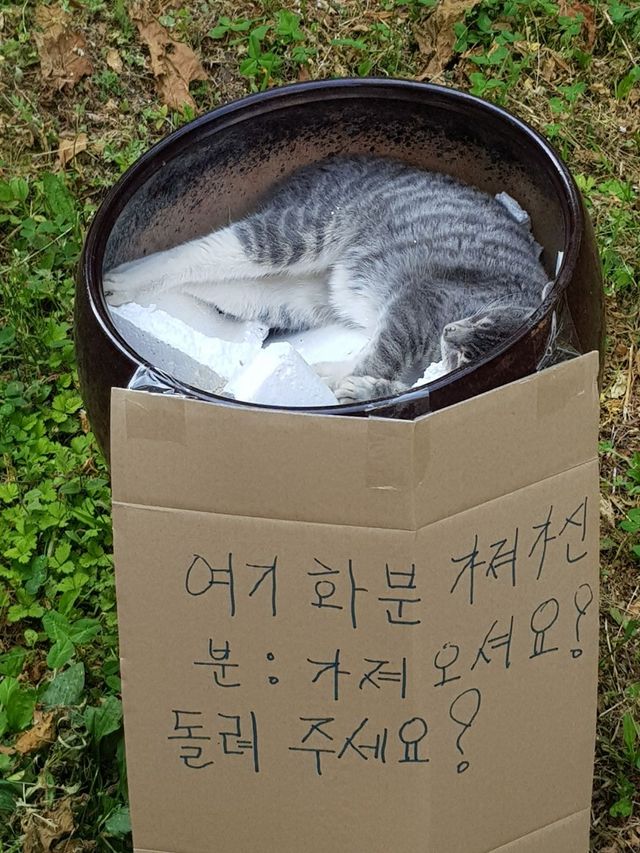 여기 화분 가져가신
분: 가져 오셔요?
돌려 주세요?